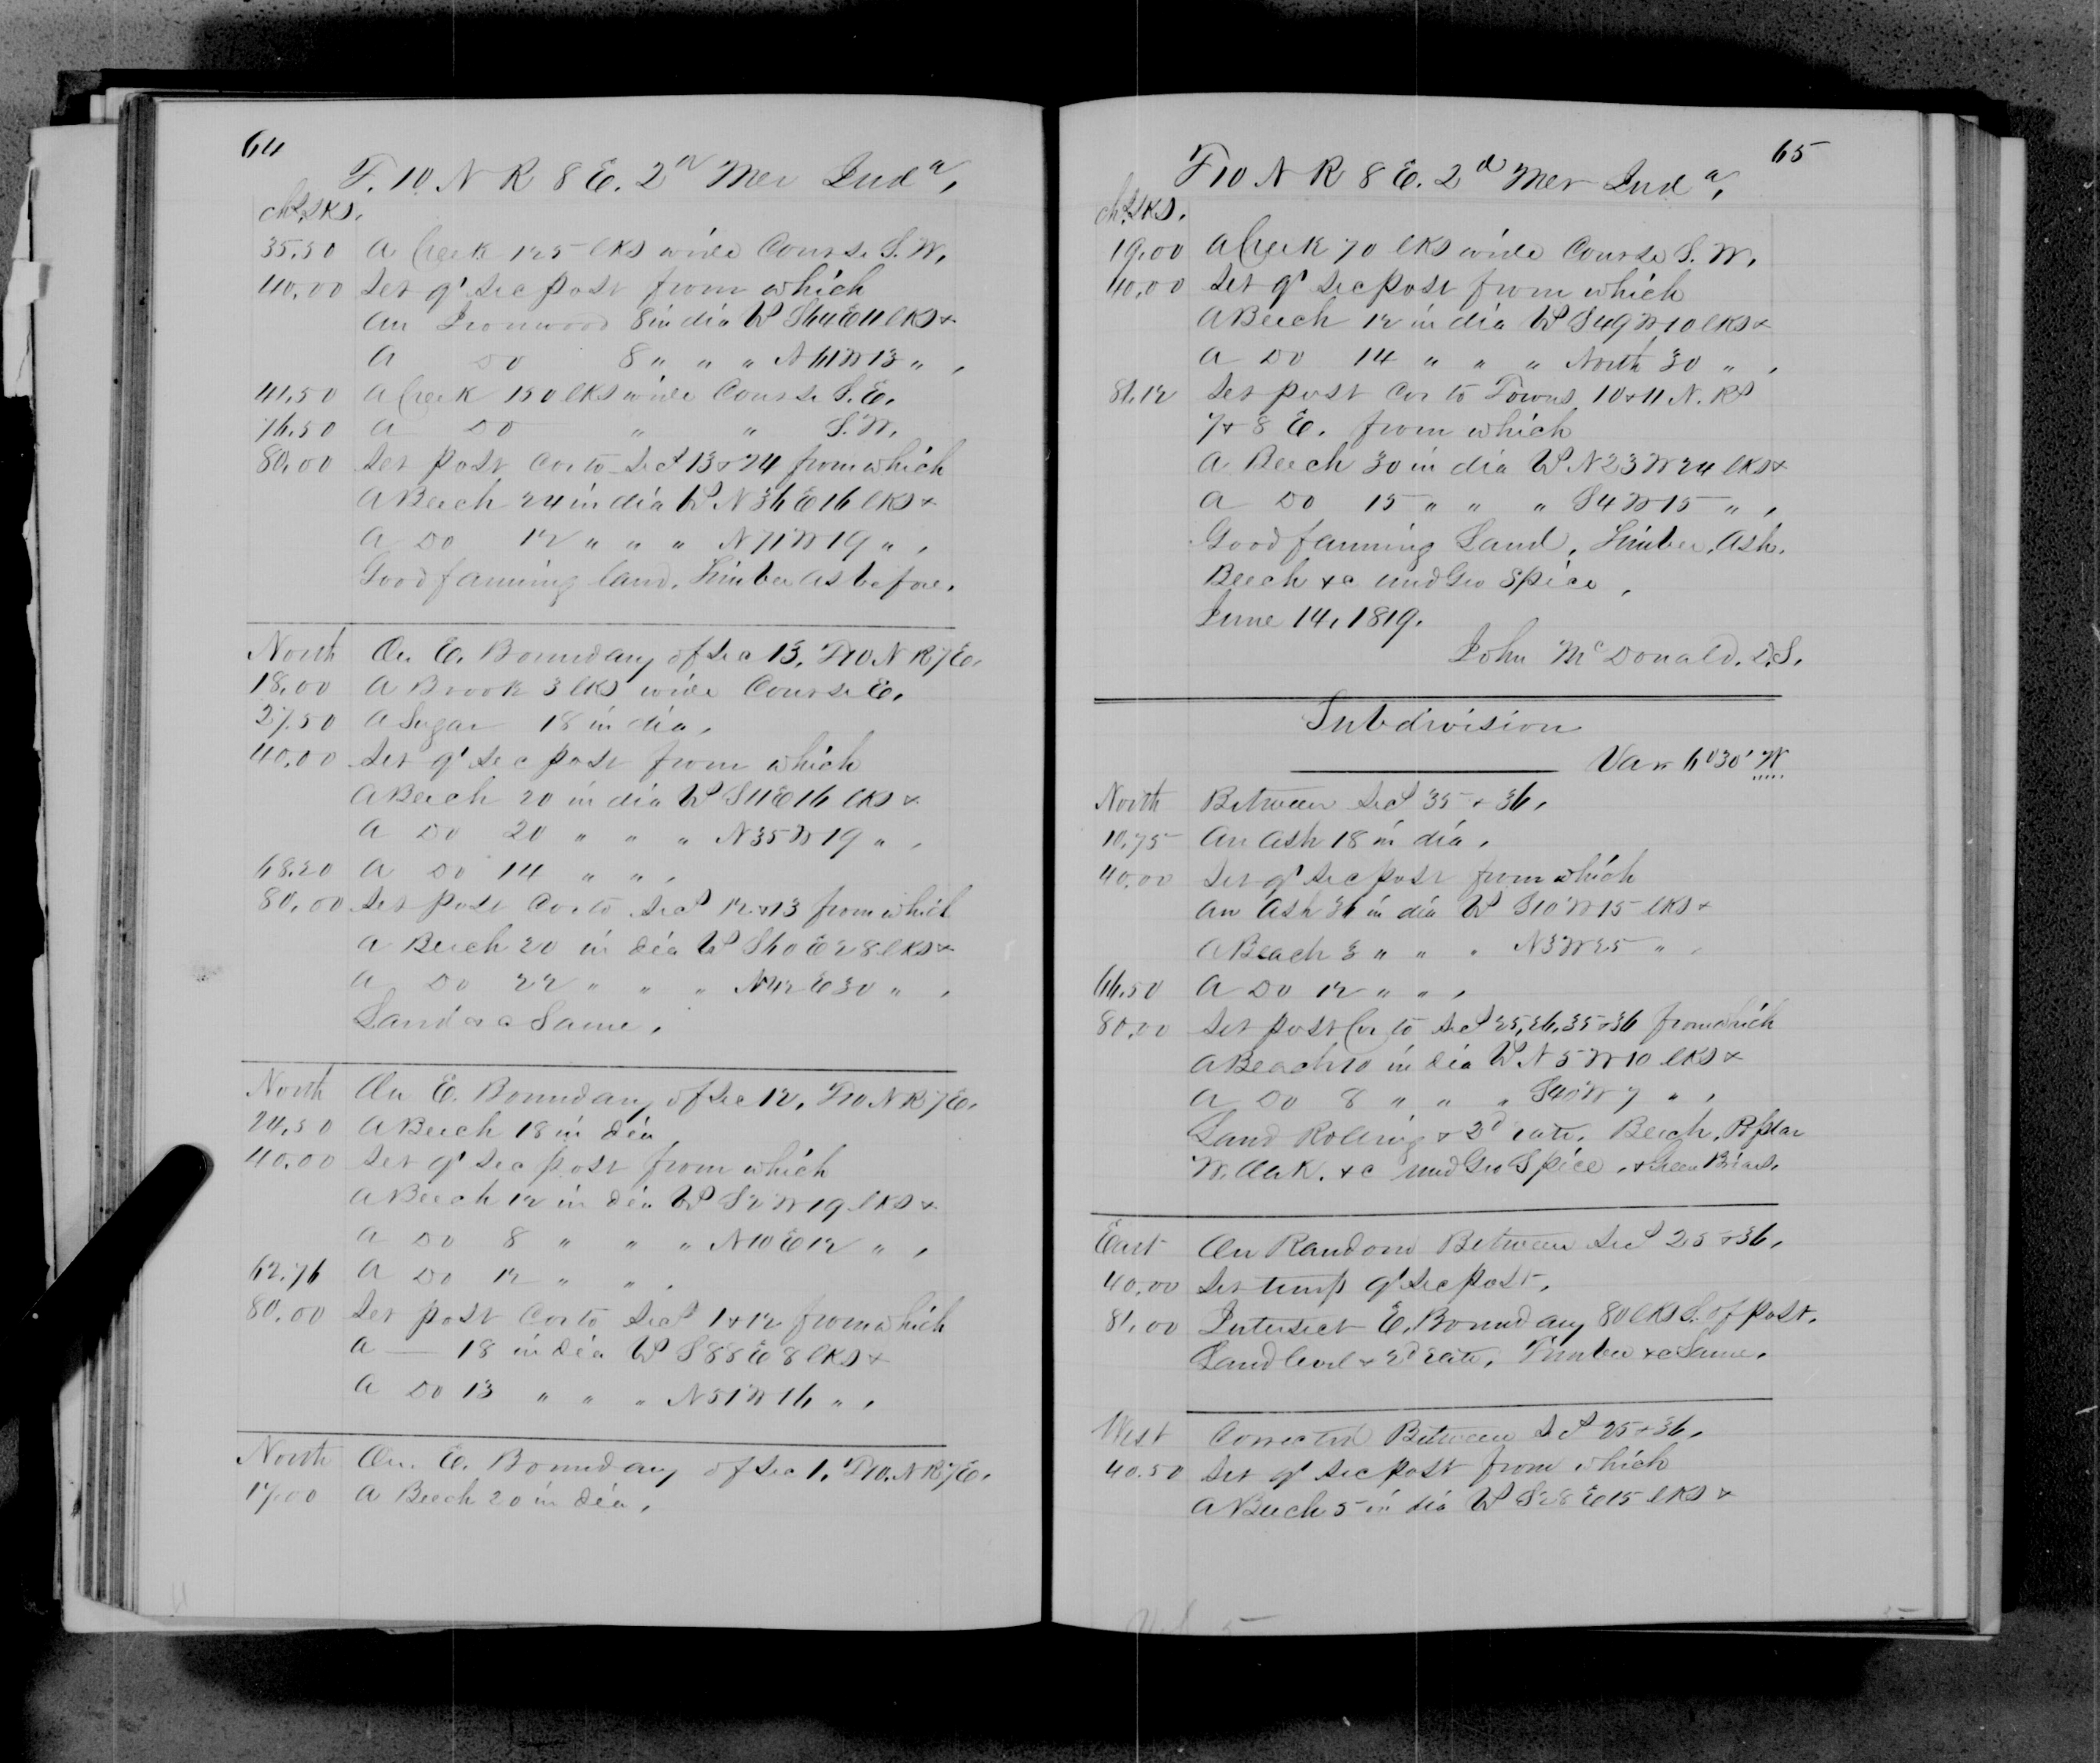 64
T. 10 N R 8 E. 2d Mer Inda,
chs. lks.
35.50 A Creek 125 lks wide Course S. W.
40.00 Set qr Sec post from which
An Ironwood 8 in dia Brs S64E11 lks &
A Do 8 " " " N61W13 " ,
41.50 A Creek 150 lks wide Course S. E.
76.50 A Do " " S. W.
80.00 Set post Cor to Secs 13 & 24 from which
A Beech 24 in dia Brs N36E16 lks &
A Do 12 " " " N71W19 " ,
Good farming land. Timber as before.
North On E. Boundary of Sec 13, T10 N R7E.
18.00 A Brook 3 lks wide Course E.
27.50 A Sugar 18 in dia,
40.00 Set qr Sec post from which
A Beech 20 in dia Brs S11E16 lks &
A Do 20 " " " N35W19 " ,
68.20 A Do 14 " " ,
80.00 Set post Cor to Secs 12 & 13 from which
A Beech 20 in dia Brs S60E28 lks &
A Do 22 " " " N42E30 " ,
Land &c Same,
North On E. Boundary of Sec 12, T10 N R7E.
24.50 A Beech 18 in dia
40.00 Set qr Sec post from which
A Beech 12 in dia Brs S2W19 lks &
A Do 8 " " " N10E12 " ,
62.76 A Do 12 " " ,
80.00 Set post Cor to Secs 1 & 12 from which
A — 18 in dia Brs S88E8 lks &
A Do 13 " " " N51W16 " ,
North On. E. Boundary of Sec 1, T10. N R7E.
17.00 A Beech 20 in dia,
65
T10 N R 8 E. 2d Mer Inda,
chs. lks.
19.00 A Creek 70 lks wide Course S. W.
40.00 Set qr Sec post from which
A Beech 12 in dia Brs S49W10 lks &
A Do 14 " " " North 30 " ,
81.12 Set post Cor to Towns 10 & 11 N. Rs
7 & 8 E. from which
A Beech 30 in dia Brs N23W24 lks &
A Do 15 " " " S4W15 " ,
Good farming Land, Timber, Ash,
Beech &c und Gro Spice,
June 14, 1819.
John McDonald. D.S.
Subdivision
Var 6°30' W
North Between Secs 35 & 36,
10.75 An Ash 18 in dia,
40.00 Set qr Sec post from which
An Ash 36 in dia Brs S10W15 lks &
A Beach 3 " " " N3W25 " ,
66.50 A Do 12 " " ,
80.00 Set post Cor to Secs 25, 26, 35 & 36 from which
A Beach 10 in dia Brs N5W10 lks &
A Do 8 " " " S40W7 " ,
Land Rolling & 2d rate. Beech, Poplar
W. Oak. &c und Gro Spice, & Green Briars,
East On Random Between Secs 25 & 36,
40.00 Set temp qr Sec post,
81.00 Intersect E. Boundary 80 lks S. of post,
Land level & 2d rate, Timber &c Same,
West Corrected Between Secs 25 & 36,
40.50 Set qr Sec post from which
A Beech 5 in dia Brs S28E15 lks &